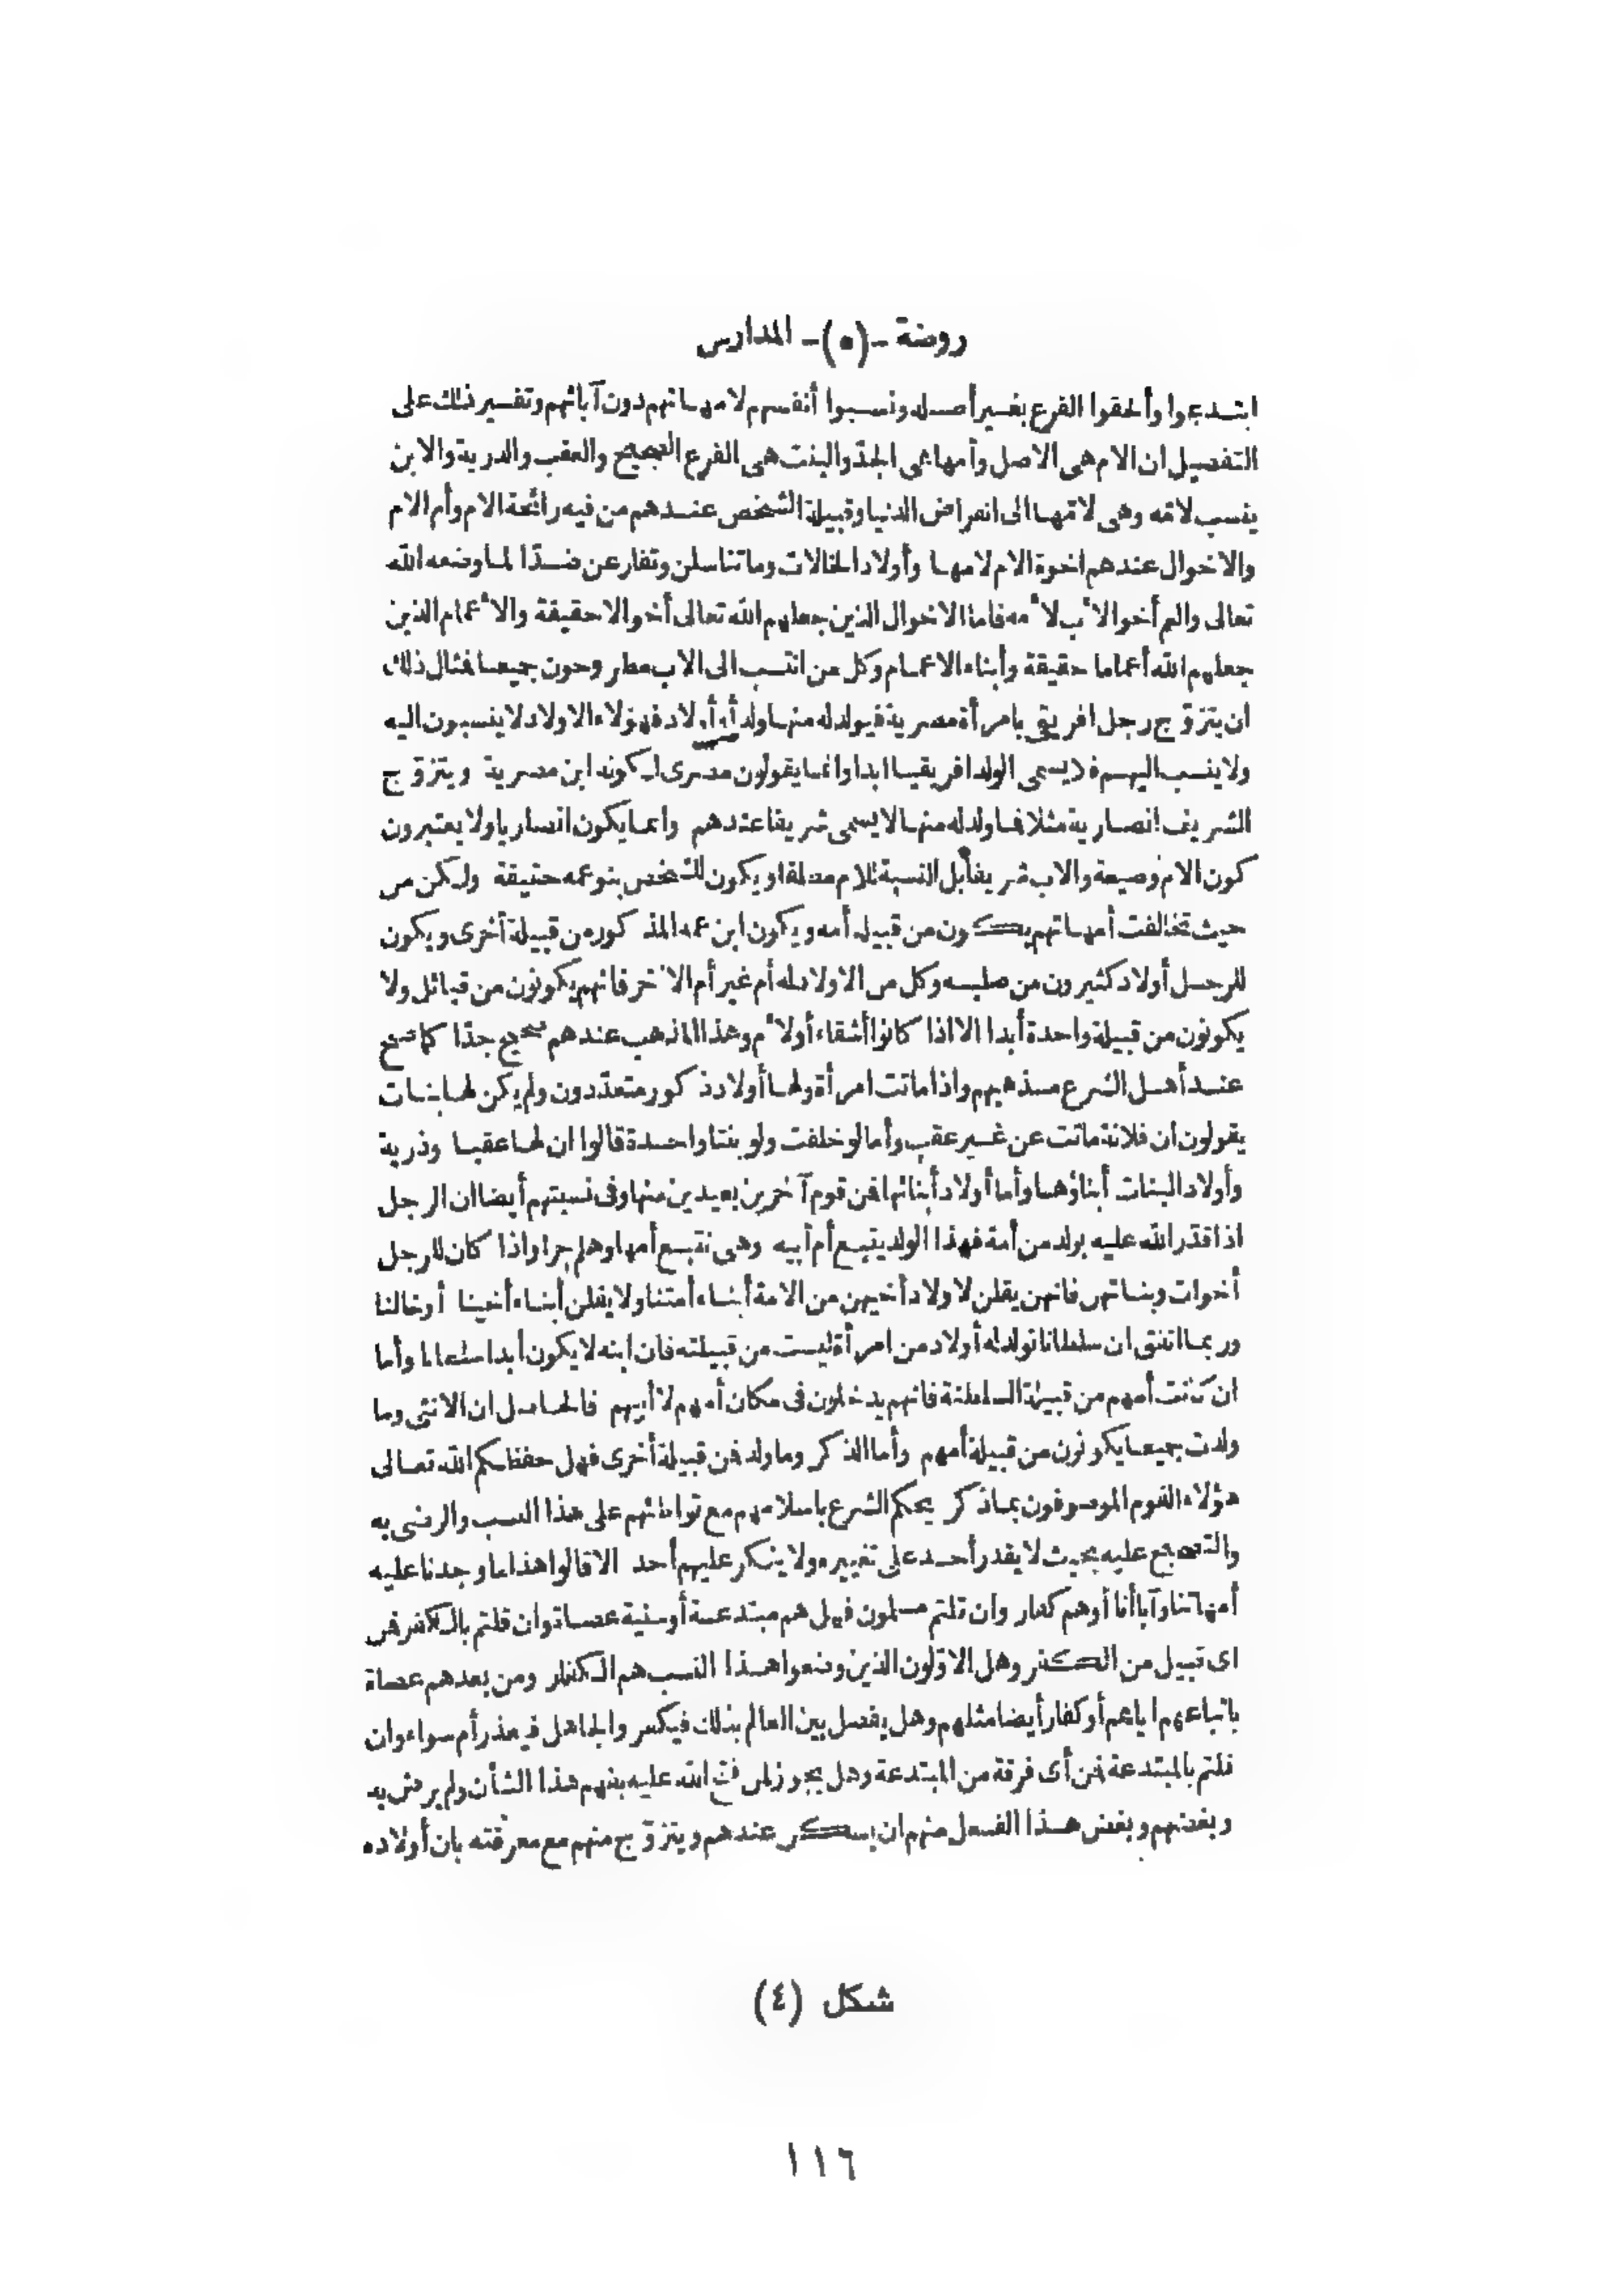 روضة -(٥)- المدارس
ابتدعوا وألحقوا الفرع بغير أصله ونسبوا أنفسهم لامهاتهم دون آبائهم وتفسير ذلك على
التفصيل ان الام هى الاصل وأمها هى الجد والبنت هى الفرع الصحيح والعقب والذرية والابن
ينسب لامه وهى لامها الى انقراض الدنيا وقبيلة الشخص عندهم من فيه رائحة الام وأم الام
والاخوال عندهم اخوة الام لامها وأولاد الخالات وما تناسلن وتفارعن ضدّا لما وضعه الله
تعالى والعم أخو الأب لأمه فاما الاخوال الذين جعلهم الله تعالى أخوالا حقيقة والأعمام الذين
جعلهم الله أعماما حقيقة وأبناء الاعمام وكل من انتسب الى الاب مطروحون جميعا فمثال ذلك
ان يتزوّج رجل افريقى بامرأة مصرية فيولد له منها ولد أو أولاد فهؤلاء الاولاد لا ينسبون اليه
ولا ينسب اليهم فلا يسمى الولد افريقيا ابدا وانما يقولون مصرى لكونه ابن مصرية ويتزوّج
الشريف انصارية مثلا فما ولد له منها لا يسمى شريفا عندهم وانما يكون انصاريا ولا يعتبرون
كون الام وضيعة والاب شريفا بل النسبة للام مطلقا ويكون للشخص بنو عمه حقيقة ولكن من
حيث تخالفت أمهاتهم يكون من قبيل أمه ويكون ابن عمه المذكور من قبيلة أخرى ويكون
للرجل أولاد كثيرون من صلبه وكل من الاولاد له أم غير أم الآخر فانهم يكونون من قبائل ولا
يكونون من قبيلة واحدة أبدا الا اذا كانوا أشقاء أو لأم وهذا المذهب عندهم صحيح جدّا كما صح
عند أهل الشرع مذهبهم واذا ماتت امرأة ولها أولاد ذكور متعدّدون ولم يكن لها بنات
يقولون ان فلانة ماتت عن غير عقب وأما لو خلفت ولو بنتا واحدة قالوا ان لها عقبا وذرية
وأولاد البنات أبناؤها وأما أولاد أبنائها فمن قوم آخرين بعيدين منها وفى نسبتهم أيضا ان الرجل
اذا قدر الله عليه بولد من أمة فهذا الولد يتبع أم أبيه وهى تتبع أمها وهلم جرا واذا كان للرجل
أخوات وبناتهن فانهن يقلن لاولاد أخيهن من الامة أبناء أمتنا ولا يقلن أبناء أخينا أو خالنا
وربما اتفق ان سلطانا تولد له أولاد من امرأة ليست من قبيلته فان ابنه لا يكون أبدا سلطانا وأما
ان كانت أمهم من قبيلة السلطنة فانهم يدخلون فى مكان أمهم لا أبيهم فالحاصل ان الانثى وما
ولدت جميعا يكونون من قبيلة أمهم وأما الذكر وما ولد فمن قبيلة أخرى فهل حفظكم الله تعالى
هؤلاء القوم الموصوفون بما ذكر يحكم الشرع باسلامهم مع تواطئهم على هذا النسب والرضى به
والتصحيح عليه بحيث لا يقدر أحد على تغييره ولا ينكر عليهم أحد الا قالوا هذا ما وجدنا عليه
أمهاتنا وآباأنا أو هم كفار وان قلتم مسلمون فهل هم مبتدعة أو سنية عصاة وان قلتم بالكفر فمن
اى قبيل من الكفر وهل الاوّلون الذين وضعوا هذا النسب هم الكفار ومن بعدهم عصاة
باتباعهم اياهم أو كفار أيضا مثلهم وهل يفصل بين العالم بذلك فيكفر والجاهل فيعذر أم سواء وان
قلتم بالمبتدعة فمن أى فرقة من المبتدعة وهل يجوز لمن فتح الله عليه بفهم هذا الشأن ولم يرض به
وبغضهم وبغض هذا الفعل منهم ان يسكن عندهم ويتزوّج منهم مع معرفته بان أولاده
شكل (٤)
١١٦